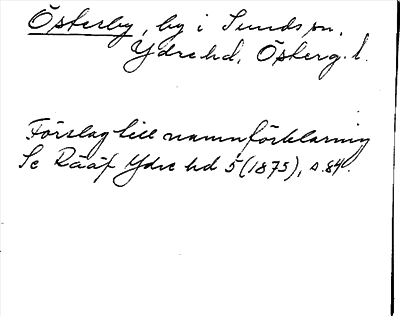 Österby, by i Sunds sn,
Ydre hd, Österg. l.
Förslag till namnförklaring
Se Rääf Ydre hd 5 (1875), s. 84.